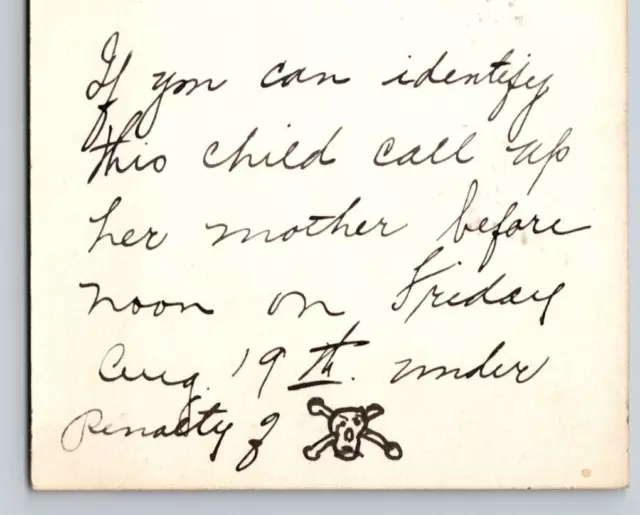 If you can identify
this child call up
her mother before
noon on Friday
Aug. 19th. under
penalty of